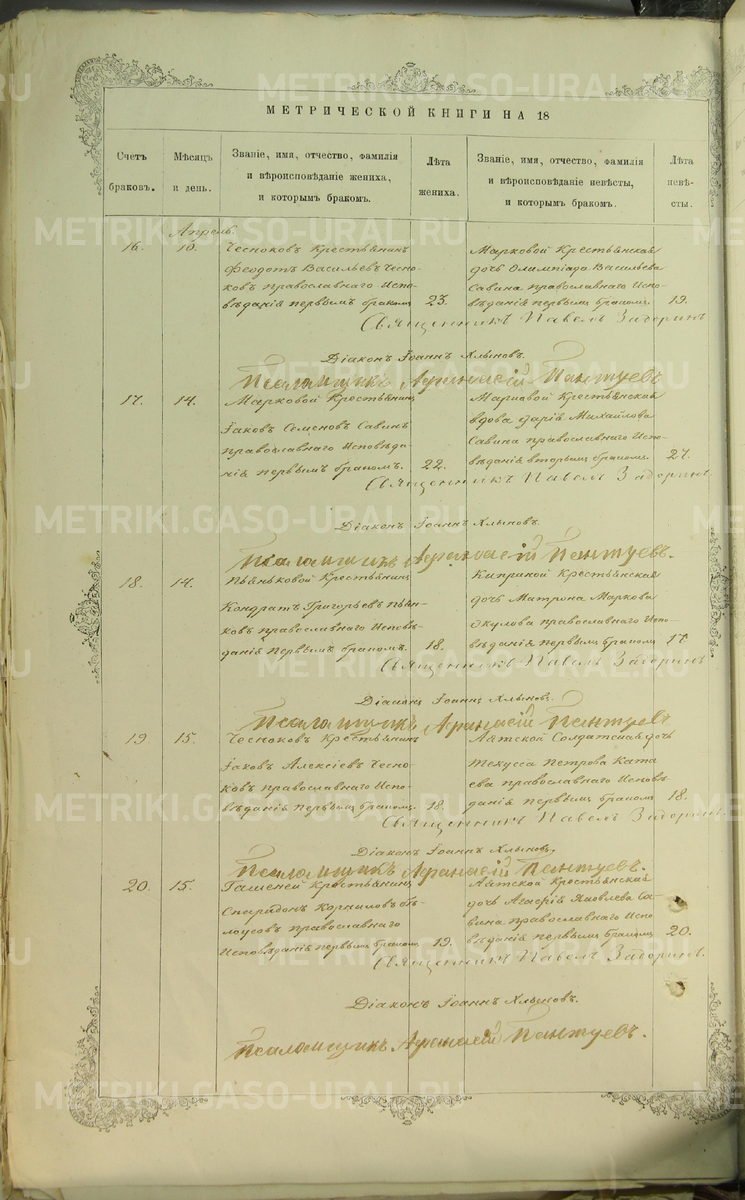 МЕТРИЧЕСКОЙ КНИГИ НА 18
Счетъ браковъ.
Мѣсяцъ и день.
Званіе, имя, отчество, фамилія
и вѣроисповѣданіе жениха,
и которымъ бракомъ.
Лѣта жениха.
Званіе, имя, отчество, фамилія
и вѣроисповѣданіе невѣсты,
и которымъ бракомъ.
Лѣта невѣ-
сты.
Апрѣль.
16.
Чесноковъ Крестьянинъ
Феодотъ Васильевъ Чесно-
ковъ православнаго Испо-
вѣданія первымъ бракомъ
23.
Марковой Крестьянская
дочь Олимпіада Васильева
Савина православнаго Испо-
вѣданія первымъ бракомъ.
19.
Священникъ Павелъ Задоринъ
Діаконъ Іоаннъ Хлыновъ.
Псаломщикъ Афанасій Пантуевъ
17. 14.
Марковой Крестьянинъ
Іаковъ Семеновъ Савинъ
православнаго Исповѣда-
нія первымъ бракомъ.
22.
Крестьянская
вдова Дарія Михайлова
Савина православнаго Испо-
вѣданія вторымъ бракомъ.
Священникъ Павелъ Задоринъ
Діаконъ Іоаннъ Хлыновъ.
Псаломщикъ Афанасій Пантуевъ.
18. 14.
Пьяньковой Крестьянинъ
Кондратъ Григорьевъ Пьян-
ковъ православнаго Исповѣ-
данія первымъ бракомъ.
18.
Киприной Крестьянская
дочь Матрона Маркова
Окулова православнаго Испо-
вѣданія первымъ бракомъ
17.
Священникъ Павелъ Задоринъ
Діаконъ Іоаннъ Хлыновъ.
Псаломщикъ Афанасій Пантуевъ
19 15.
Чесноковъ Крестьянинъ
Іаковъ Алексіевъ Чесно-
ковъ православнаго Испо-
вѣданія первымъ бракомъ.
18.
Аятской Солдатская дочь
Петрова Ката
ева православнаго Исповѣ-
данія первымъ бракомъ
18.
Священникъ Павелъ Задоринъ.
Діаконъ Іоаннъ Хлыновъ.
Псаломщикъ Афанасій Пантуевъ.
20. 15.
Гашеней Крестьянинъ
Спиридонъ Корниловъ Бѣ-
лоусовъ православнаго
Исповѣданія первымъ бракомъ
19.
Аятской Крестьянская
дочь Агафія Яковлева Са-
вина православнаго Испо
вѣданія первымъ бракомъ
20.
Священникъ Павелъ Задоринъ.
Діаконъ Іоаннъ Хлыновъ.
Псаломщикъ Афанасій Пантуевъ.
METRIKI.GASO-URAL.RU